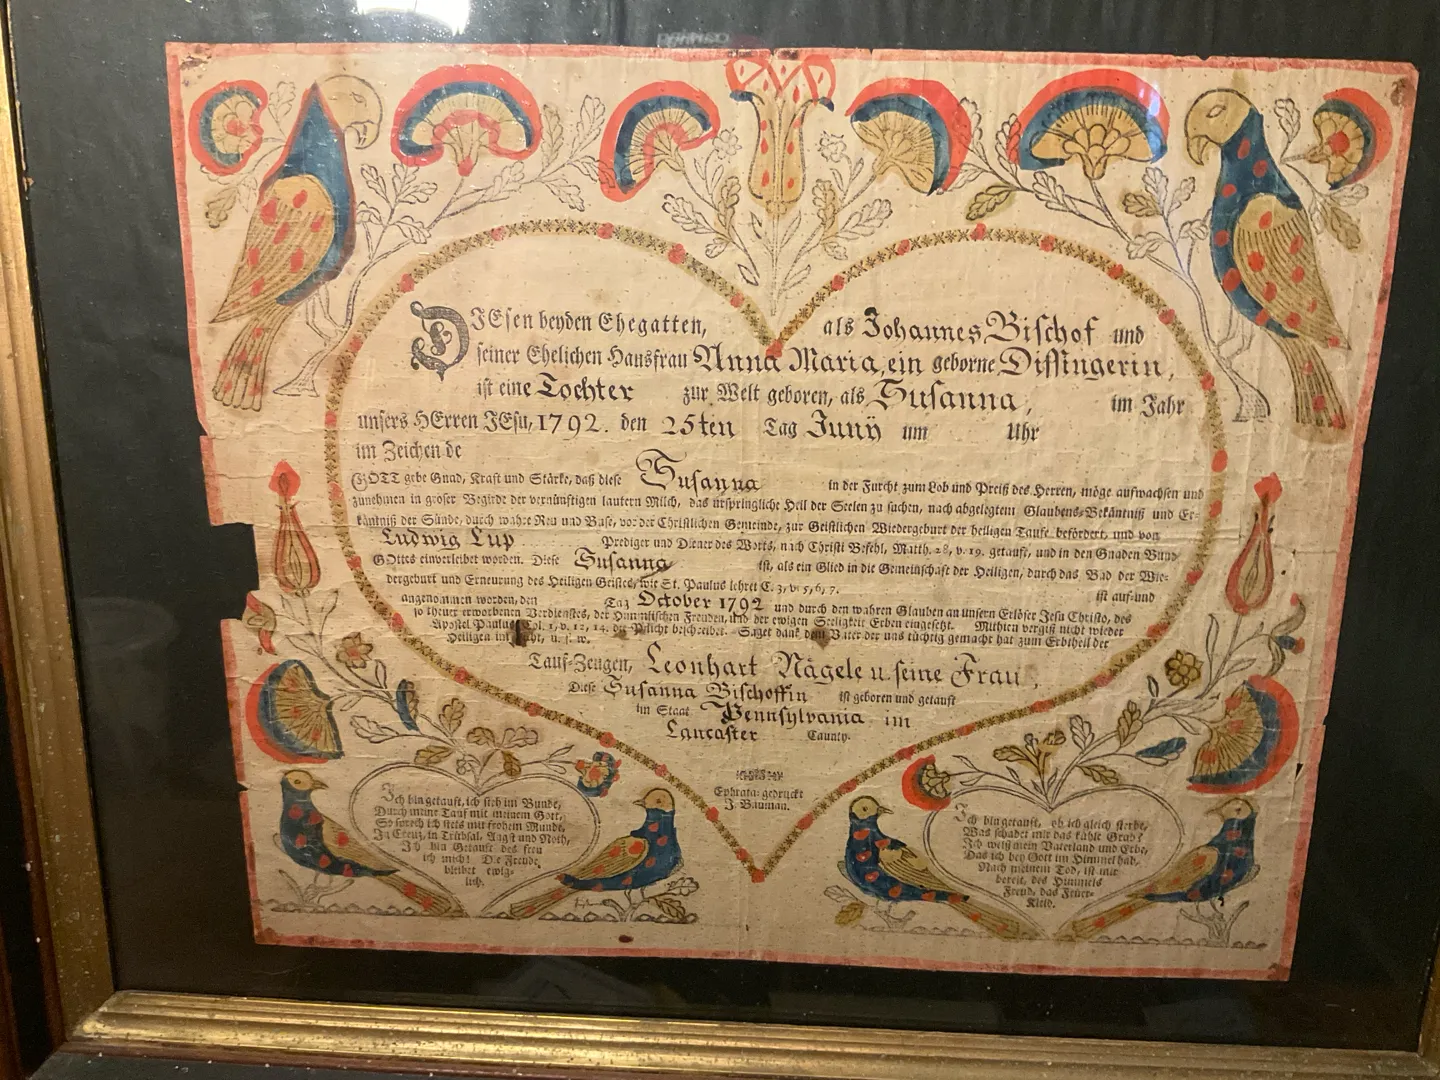 DIEsen beyden Ehegatten, als Johannes Bischof und
seiner Ehelichen Hausfrau Anna Maria, ein geborne Dissingerin,
ist eine Tochter zur Welt geboren, als Susanna, im Jahr
unsers HErren JEsu, 1792. den 25ten Tag Junÿ um Uhr
im Zeichen de
GOTT gebe Gnad, Kraft und Stärke, daß diese Susanna in der Furcht zum Lob und Preiß des Herren, möge aufwachsen und
zunehmen in groser Begirde der vernünftigen lautern Milch, das urspringliche Heil der Seelen zu suchen, nach abgelegtem Glaubens-Bekäntniß und Er-
käntniß der Sünde, durch wahre Reu und Buse, vor der Christlichen Gemeinde, zur Geistlichen Wiedergeburt der heiligen Taufe befördert, und von
Ludwig Lup Prediger und Diener des Worts, nach Christi Befehl, Matth. 28, v. 19. getauft, und in den Gnaden Bund
GOttes einverleibet worden. Diese Susanna ist, als ein Glied in die Gemeinschaft der Heiligen, durch das Bad der Wie-
dergeburt und Erneurung des Heiligen Geistes, wie St. Paulus lehret C. 3, v. 5, 6, 7. ist auf-und
angenommen worden, den Tag October 1792 und durch den wahren Glauben an unsern Erlöser Jesu Christo, des
so theuer erworbenen Verdienstes, der Himmlischen Freuden, und der ewigen Seeligkeit Erben eingesetzt. Mithien vergiß nicht wieder
Apostel Paulus Col. 1, v. 12, 14. die Pflicht beschreibet. Saget dank dem Vater der uns tüchtig gemacht hat zum Erbtheil der
Heiligen im Licht, u. s. w.
Tauf-Zeugen, Leonhart Nägele u. seine Frau,
Diese Susanna Bischoffin ist geboren und getauft
im Staat Pennsylvania im
Lancaster County.
Ephrata: gedruckt
J. Bauman.
Ich bin getauft, ich steh im Bunde,
Durch meine Tauf mit meinem Gott,
So sprech ich stets mit frohem Munde,
In Creuz, in Trübsal, Angst und Noth,
Ich bin Getauft des freu
ich mich! Die Freude
bleibet ewig-
lich.
Ich bin getauft, ob ich gleich sterbe,
Was schadet mir das kühle Grab?
Ich weiß mein Vaterland und Erbe,
Das ich bey Gott im Himmel hab,
Nach meinem Tod, ist mir
bereit, des Himmels
Freud, das Feuer-
Kleid.